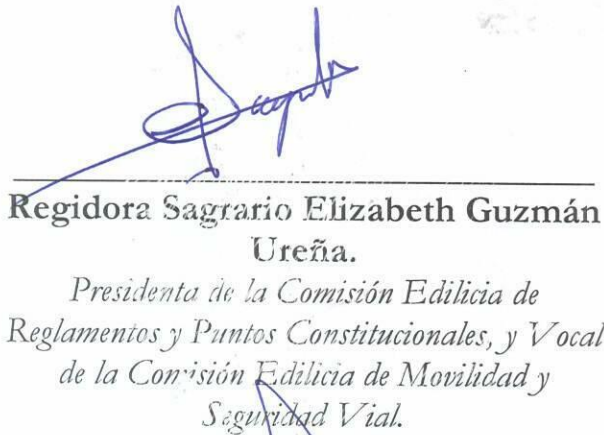 Regidora Sagrario Elizabeth Guzmán
Ureña.
Presidenta de la Comisión Edilicia de
Reglamentos y Puntos Constitucionales, y Vocal
de la Comisión Edilicia de Movilidad y
Seguridad Vial.